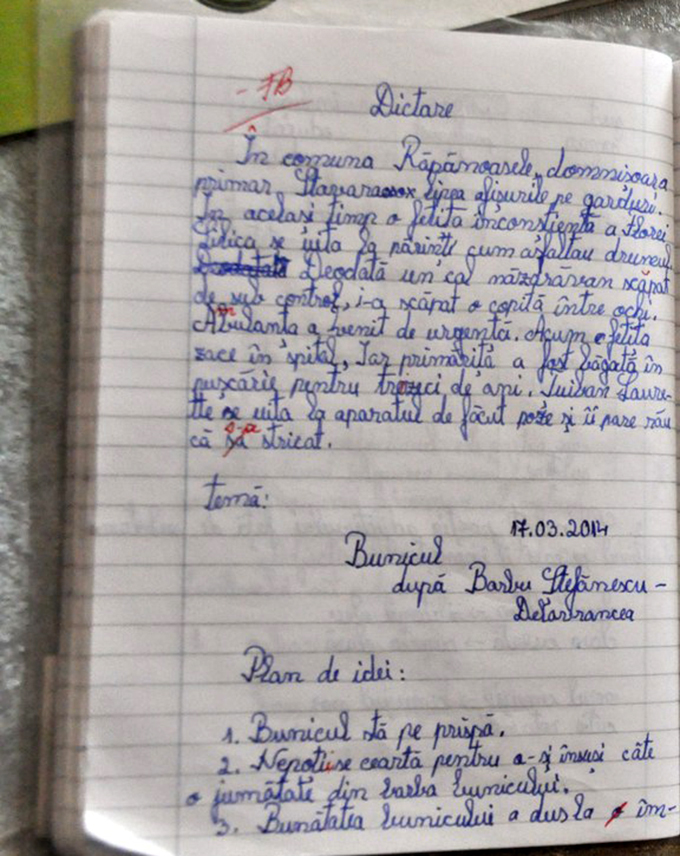 - FB
Dictare
În comuna Răpănoasele, domnisoara
primar, lipea afișurile pe garduri.
În acelasi timp o fetita inconștientă a Florei
Lidica se uita la părinți cum asfaltau drumul.
Deodată un cal măzgărăvan scăpat
de sub control, i-a scăpat o copită între ochi.
Ambulanta a venit de urgentă. Acum fetita
zace în spital, Iar primărită a fost băgată în
pușcărie pentru treizeci de ani. Laure-
tte se uita la aparatul de făcut poze și îi pare rău
că s-a stricat.
temă:
17.03.2014
Bunicul
după Barbu Ștefănescu -
Delavrancea
Plan de idei:
1. Bunicul stă pe prispă.
2. Nepoții se ceartă pentru a-și însusi câte
o jumătate din barba bunicului.
3. Bunătatea bunicului a dus la îm-